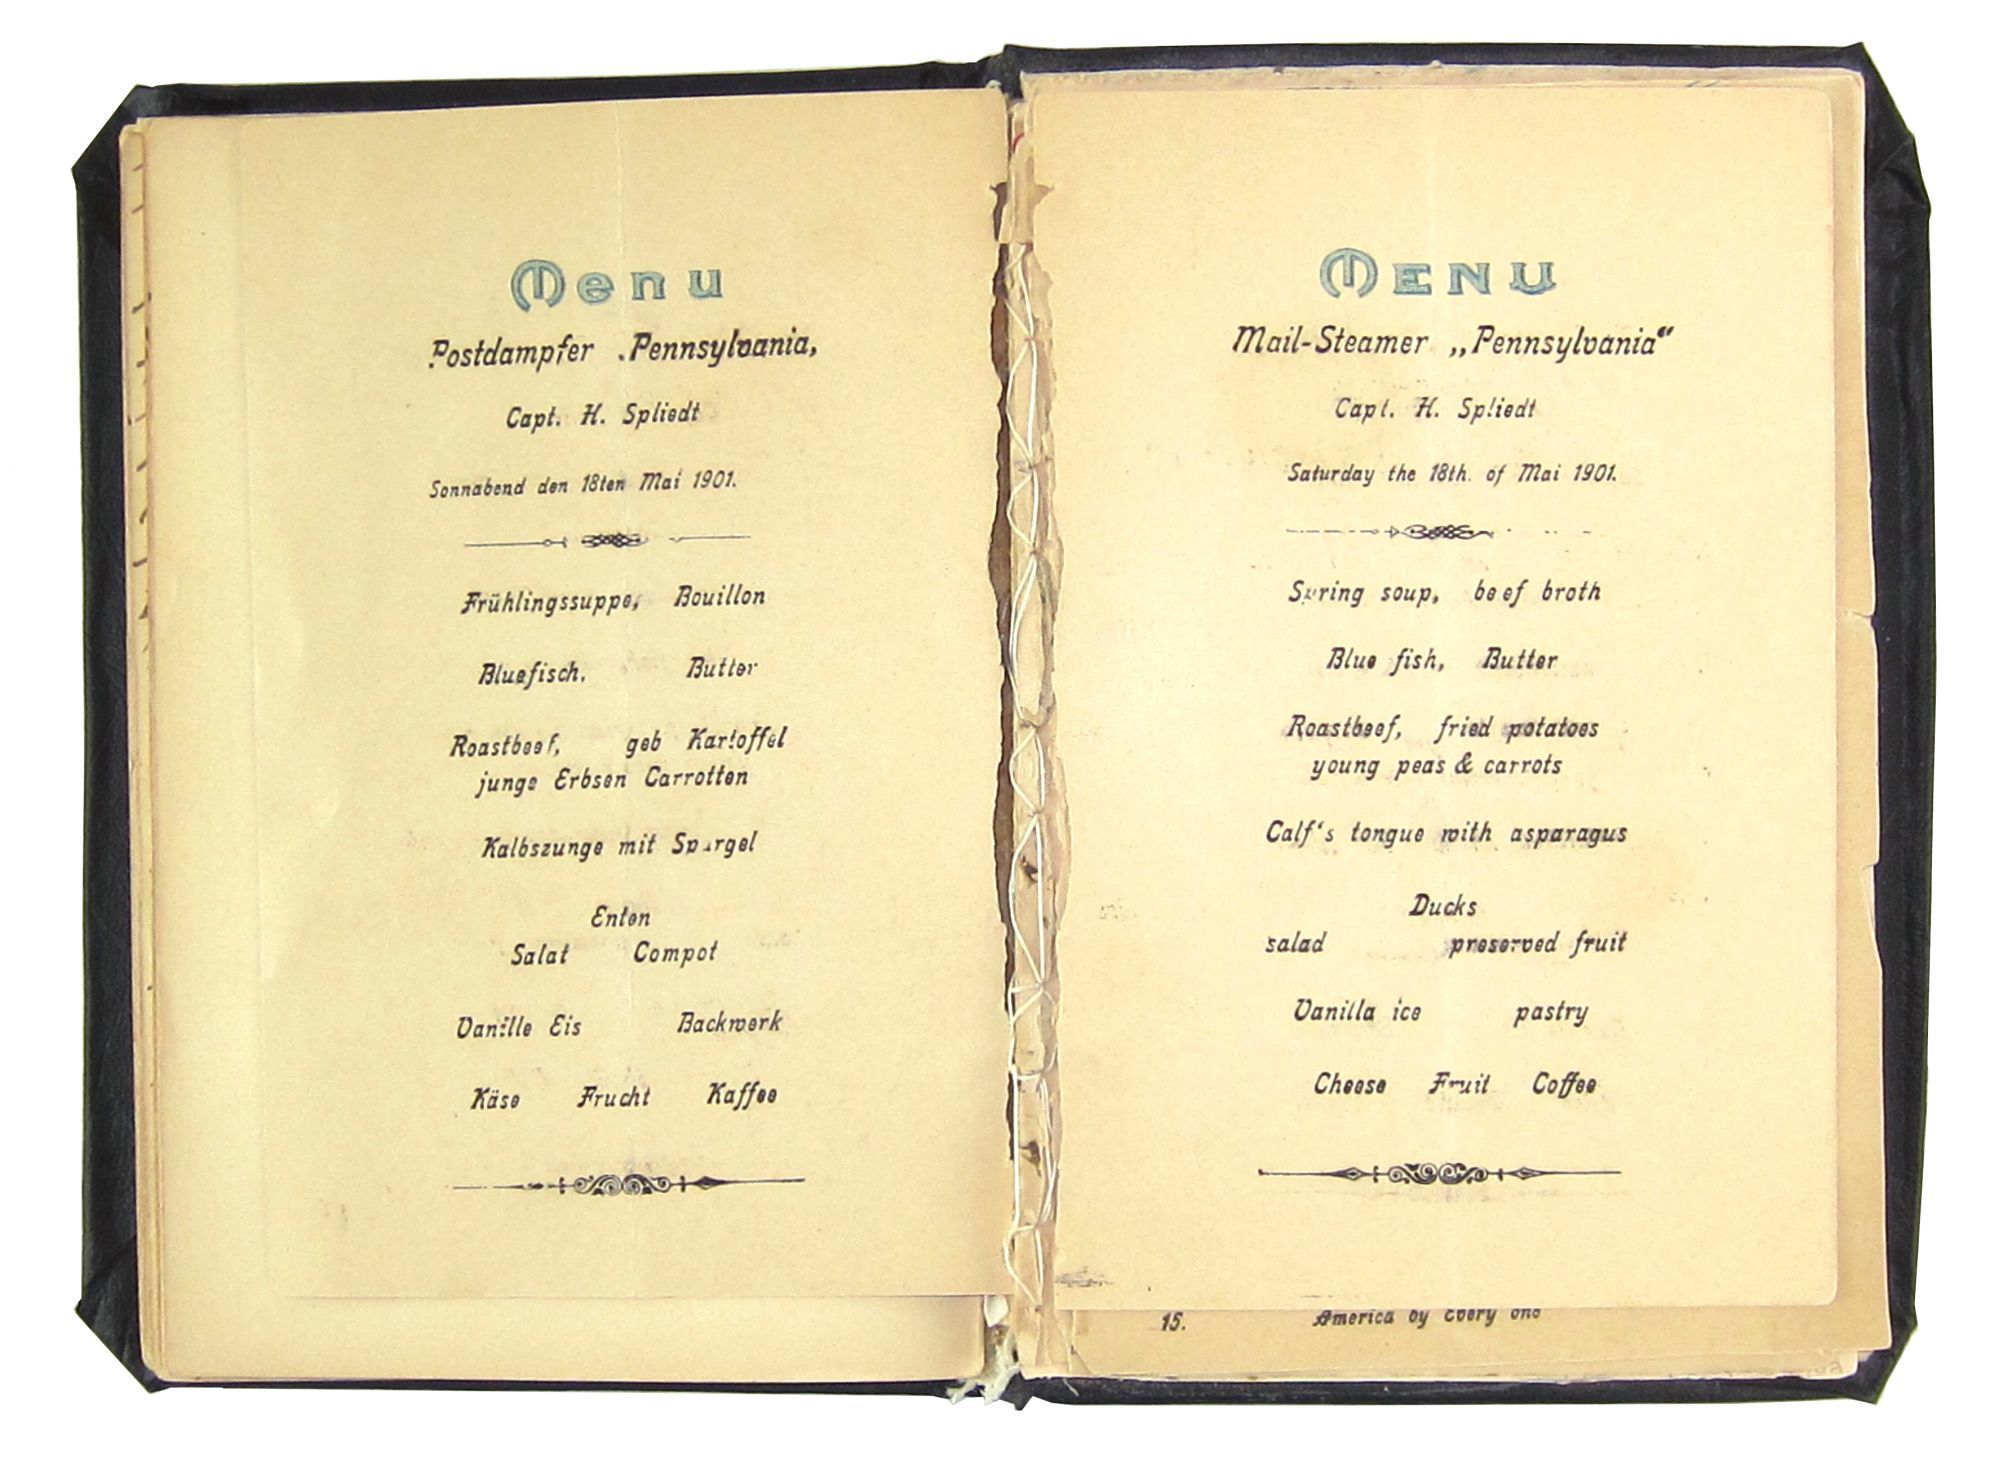 Menu
Postdampfer „Pennsylvania,
Capt. H. Spliedt
Sonnabend den 18ten Mai 1901.
Frühlingssuppe, Bouillon
Bluefisch, Butter
Roastbeef, geb Kartoffel
junge Erbsen Carrotten
Kalbszunge mit Spargel
Enten
Salat Compot
Vanille Eis Backwerk
Käse Frucht Kaffee
MENU
Mail-Steamer „Pennsylvania“
Capt. H. Spliedt
Saturday the 18th. of Mai 1901.
Spring soup, beef broth
Blue fish, Butter
Roastbeef, fried potatoes
young peas & carrots
Calf‘s tongue with asparagus
Ducks
salad preserved fruit
Vanilla ice pastry
Cheese Fruit Coffee
15. America by Every one